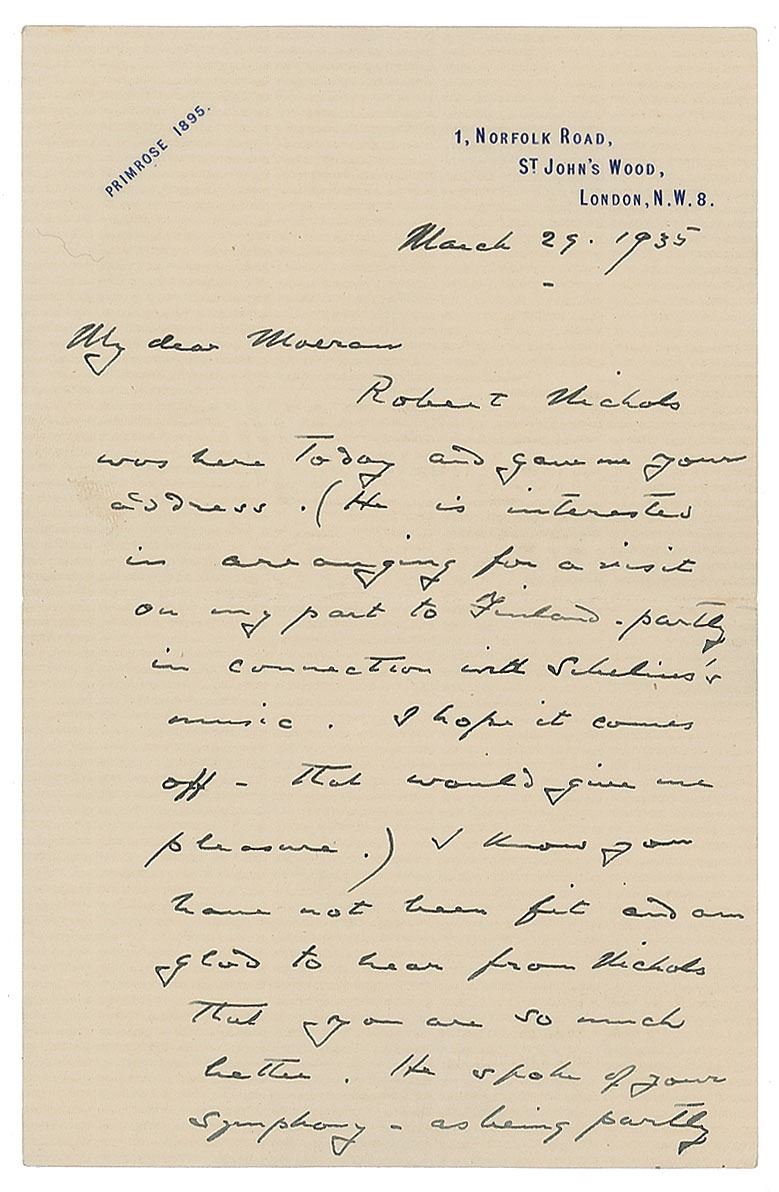 PRIMROSE 1895.
1, NORFOLK ROAD,
ST JOHN'S WOOD,
LONDON, N.W.8.
March 29. 1935
My dear Moeran
Robert Nichols
was here Today and gave me your
address. (He is interested
in arranging for a visit
on my part to Finland - partly
in connection with Sibelius's
music. I hope it comes
off - that would give me
pleasure.) I know you
have not been fit and am
glad to hear from Nichols
that you are so much
better. He spoke of your
symphony - as being partly